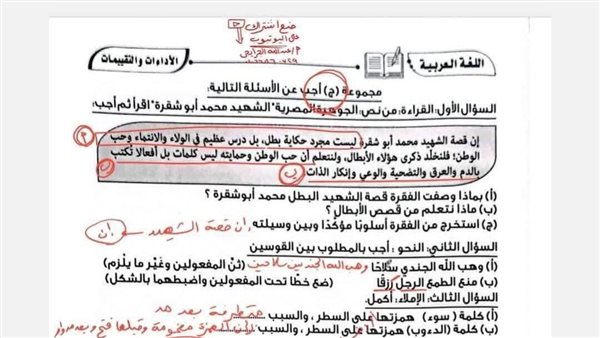 ضع اشتراك
على اليوتيوب
اللغة العربية
الأداءات والتقييمات
مجموعة (ج) أجب عن الأسئلة التالية:
السؤال الأول: القراءة: من نص: الجوهرة المصرية "الشهيد محمد أبو شقرة "اقرأ ثم أجب:
إن قصة الشهيد محمد أبو شقرة ليست مجرد حكاية بطل، بل درس عظيم في الولاء والانتماء وحب
الوطن؛ فلنخلّد ذكرى هؤلاء الأبطال، ولنتعلم أن حب الوطن وحمايته ليس كلمات بل أفعالا تُكتب
بالدم والعرق والتضحية والوعي وإنكار الذات
(أ) بماذا وصفت الفقرة قصة الشهيد البطل محمد أبوشقرة ؟
(ب) ماذا نتعلم من قصص الأبطال ؟
(ج) استخرج من الفقرة أسلوبًا مؤكدًا وبين وسيلته إن قصة الشهيد ـ إن
السؤال الثاني: النحو : أجب بالمطلوب بين القوسين
(أ) وهب الله الجندي سلاحًا وهب الله الجنديين سلاحين (ثنّ المفعولين وغيّر ما يلزم)
(ب) منع الطمع الرجل رزقًا (ضع خطًا تحت المفعولين واضبطهما بالشكل)
السؤال الثالث: الإملاء: أكمل.
(أ) كلمة ( سوء ) همزتها على السطر ، والسبب متطرفة بعد مد
(ب) كلمة (الدءوب) همزتها على السطر، والسبب لأن الهمزة مضمومة وقبلها فتح وبعدها واو